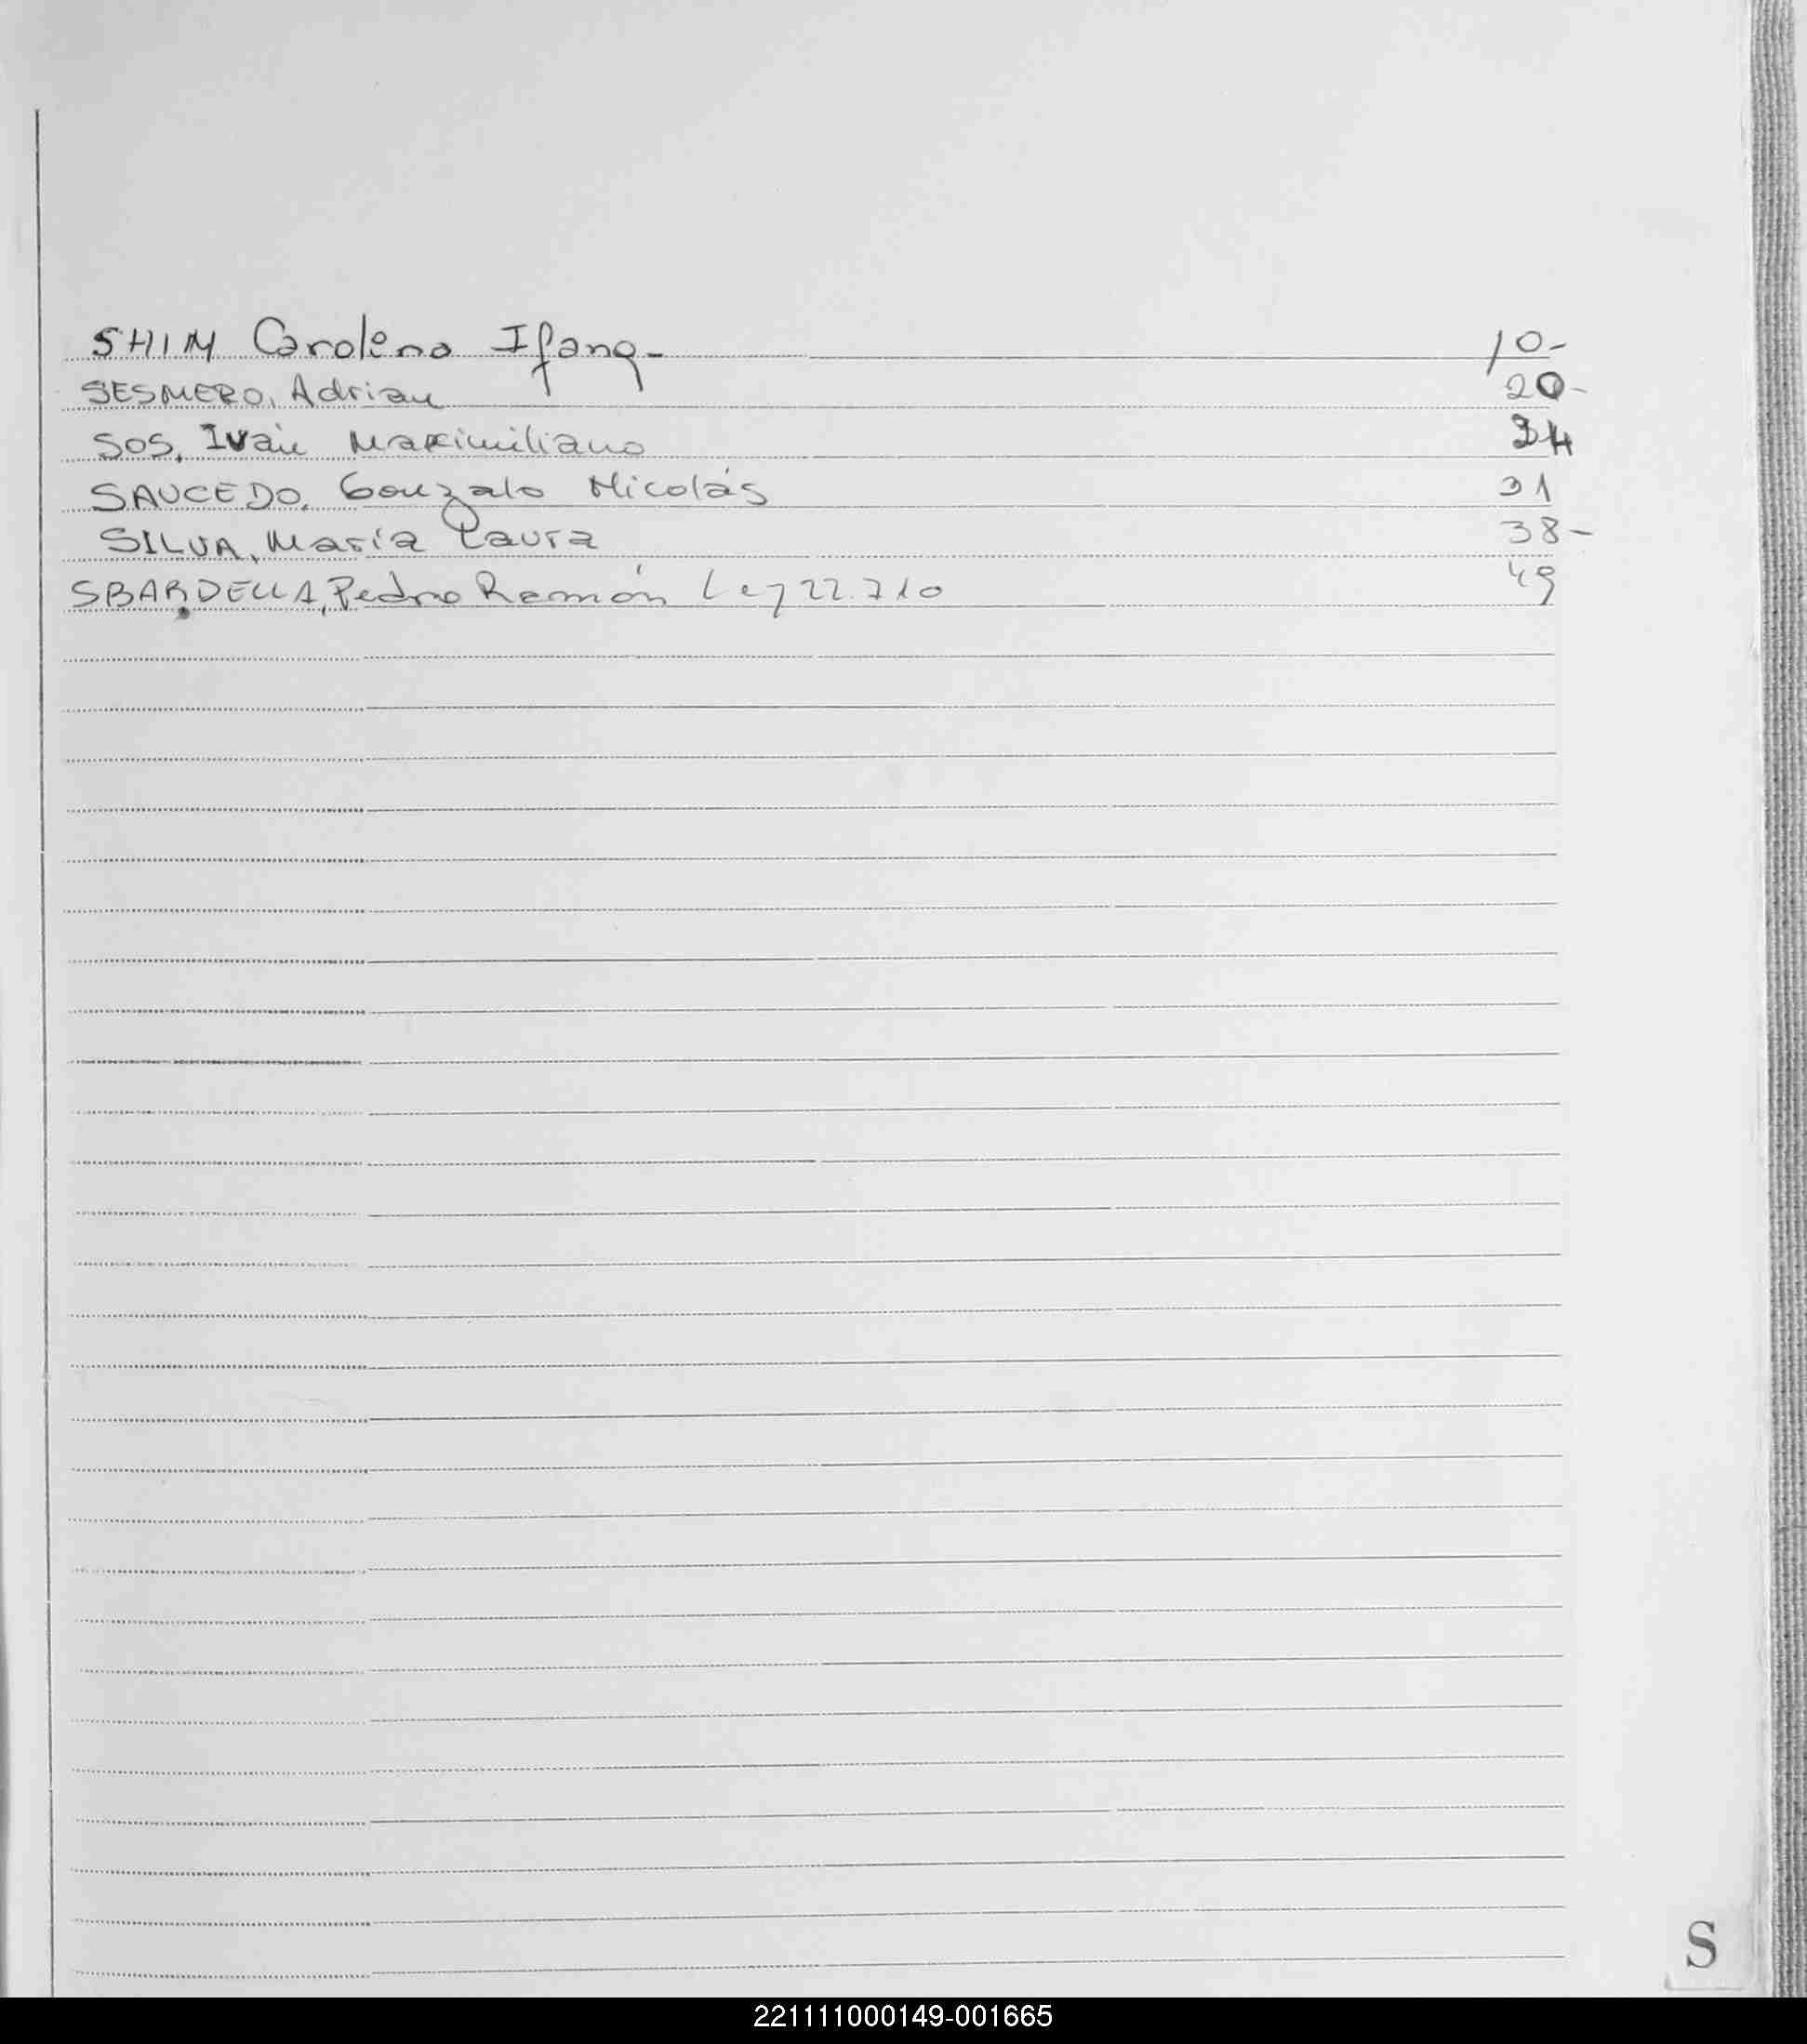 SHIM Carolina Ifang- 10-
SESMERO, Adrian 20-
SOS, Ivan Maximiliano 24
SAUCEDO, Gonzalo Nicolás 31
SILVA, María Laura 38-
SBARDELLA, Pedro Ramón Ley 22.710 49
S
221111000149-001665